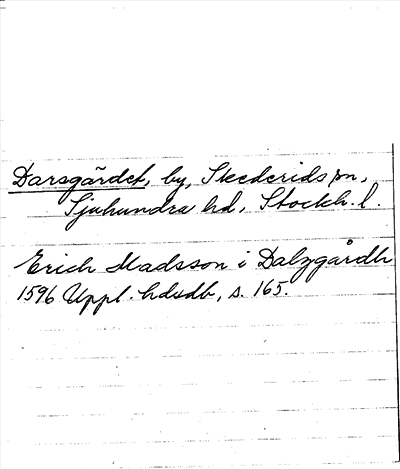 Darsgärdet, by, Skederids sn,
Sjuhundra hd, Stockh. l.
Erich Madsson i Dalzgårdh
1596 Uppl. hdsdb, s. 165.